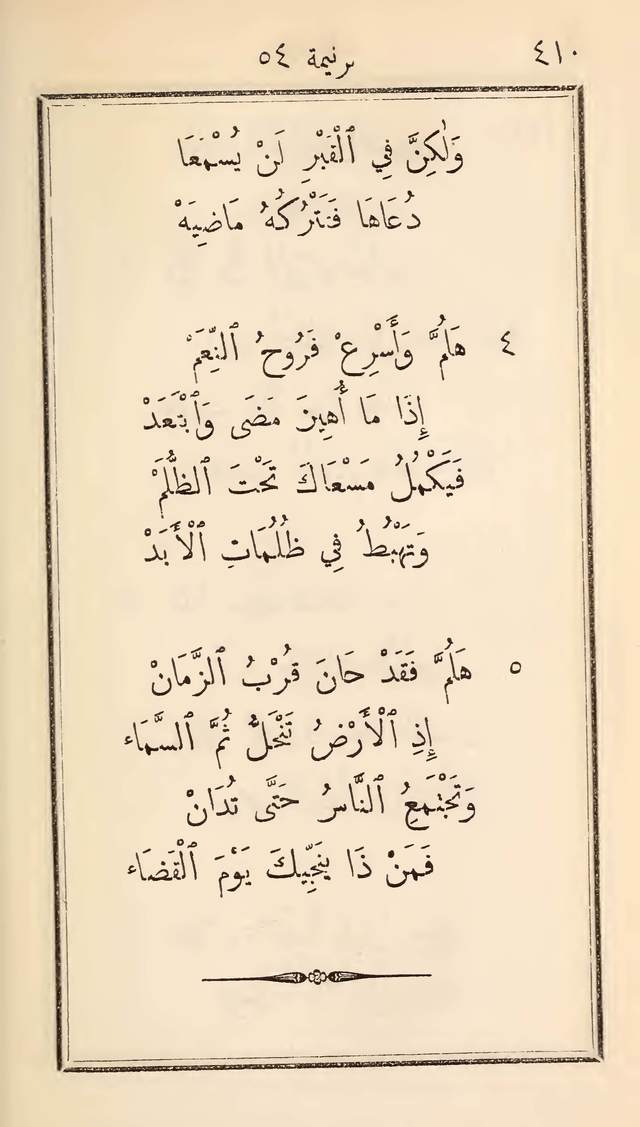 ٤١٠ ترنيمة ٥٤
وَلٰكِنَّ فِي ٱلْقَبْرِ لَنْ يُسْمَعَا
دُعَاهَا فَتَتْرُكُهُ مَاضِيَهْ
٤ هَلُمَّ وَأَسْرِعْ فَرُوحُ ٱلنِّعَمْ
إِذَا مَا أُهِينَ مَضَى وَٱبْتَعَدْ
فَيَكْمُلُ مَسْعَاكَ تَحْتَ ٱلظُّلَمْ
وَتَهْبُطُ فِي ظُلُمَاتِ ٱلْأَبَدْ
٥ هَلُمَّ فَقَدْ حَانَ قُرْبُ ٱلزَّمَانْ
إِذِ ٱلْأَرْضُ تَنْحَلُّ ثُمَّ ٱلسَّمَاء
وَتَجْتَمِعُ ٱلنَّاسُ حَتَّى تُدَانْ
فَمَنْ ذَا يُنَجِّيكَ يَوْمَ ٱلْقَضَاء